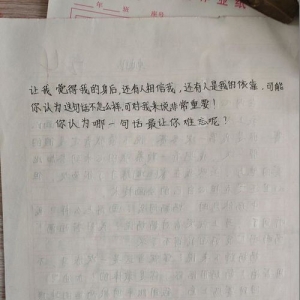 让我觉得我的身后,还有人相信我,还有人是我的依靠,可能
你认为这句话不怎么样,可对我来说非常重要!
你认为哪一句话最让你难忘呢?